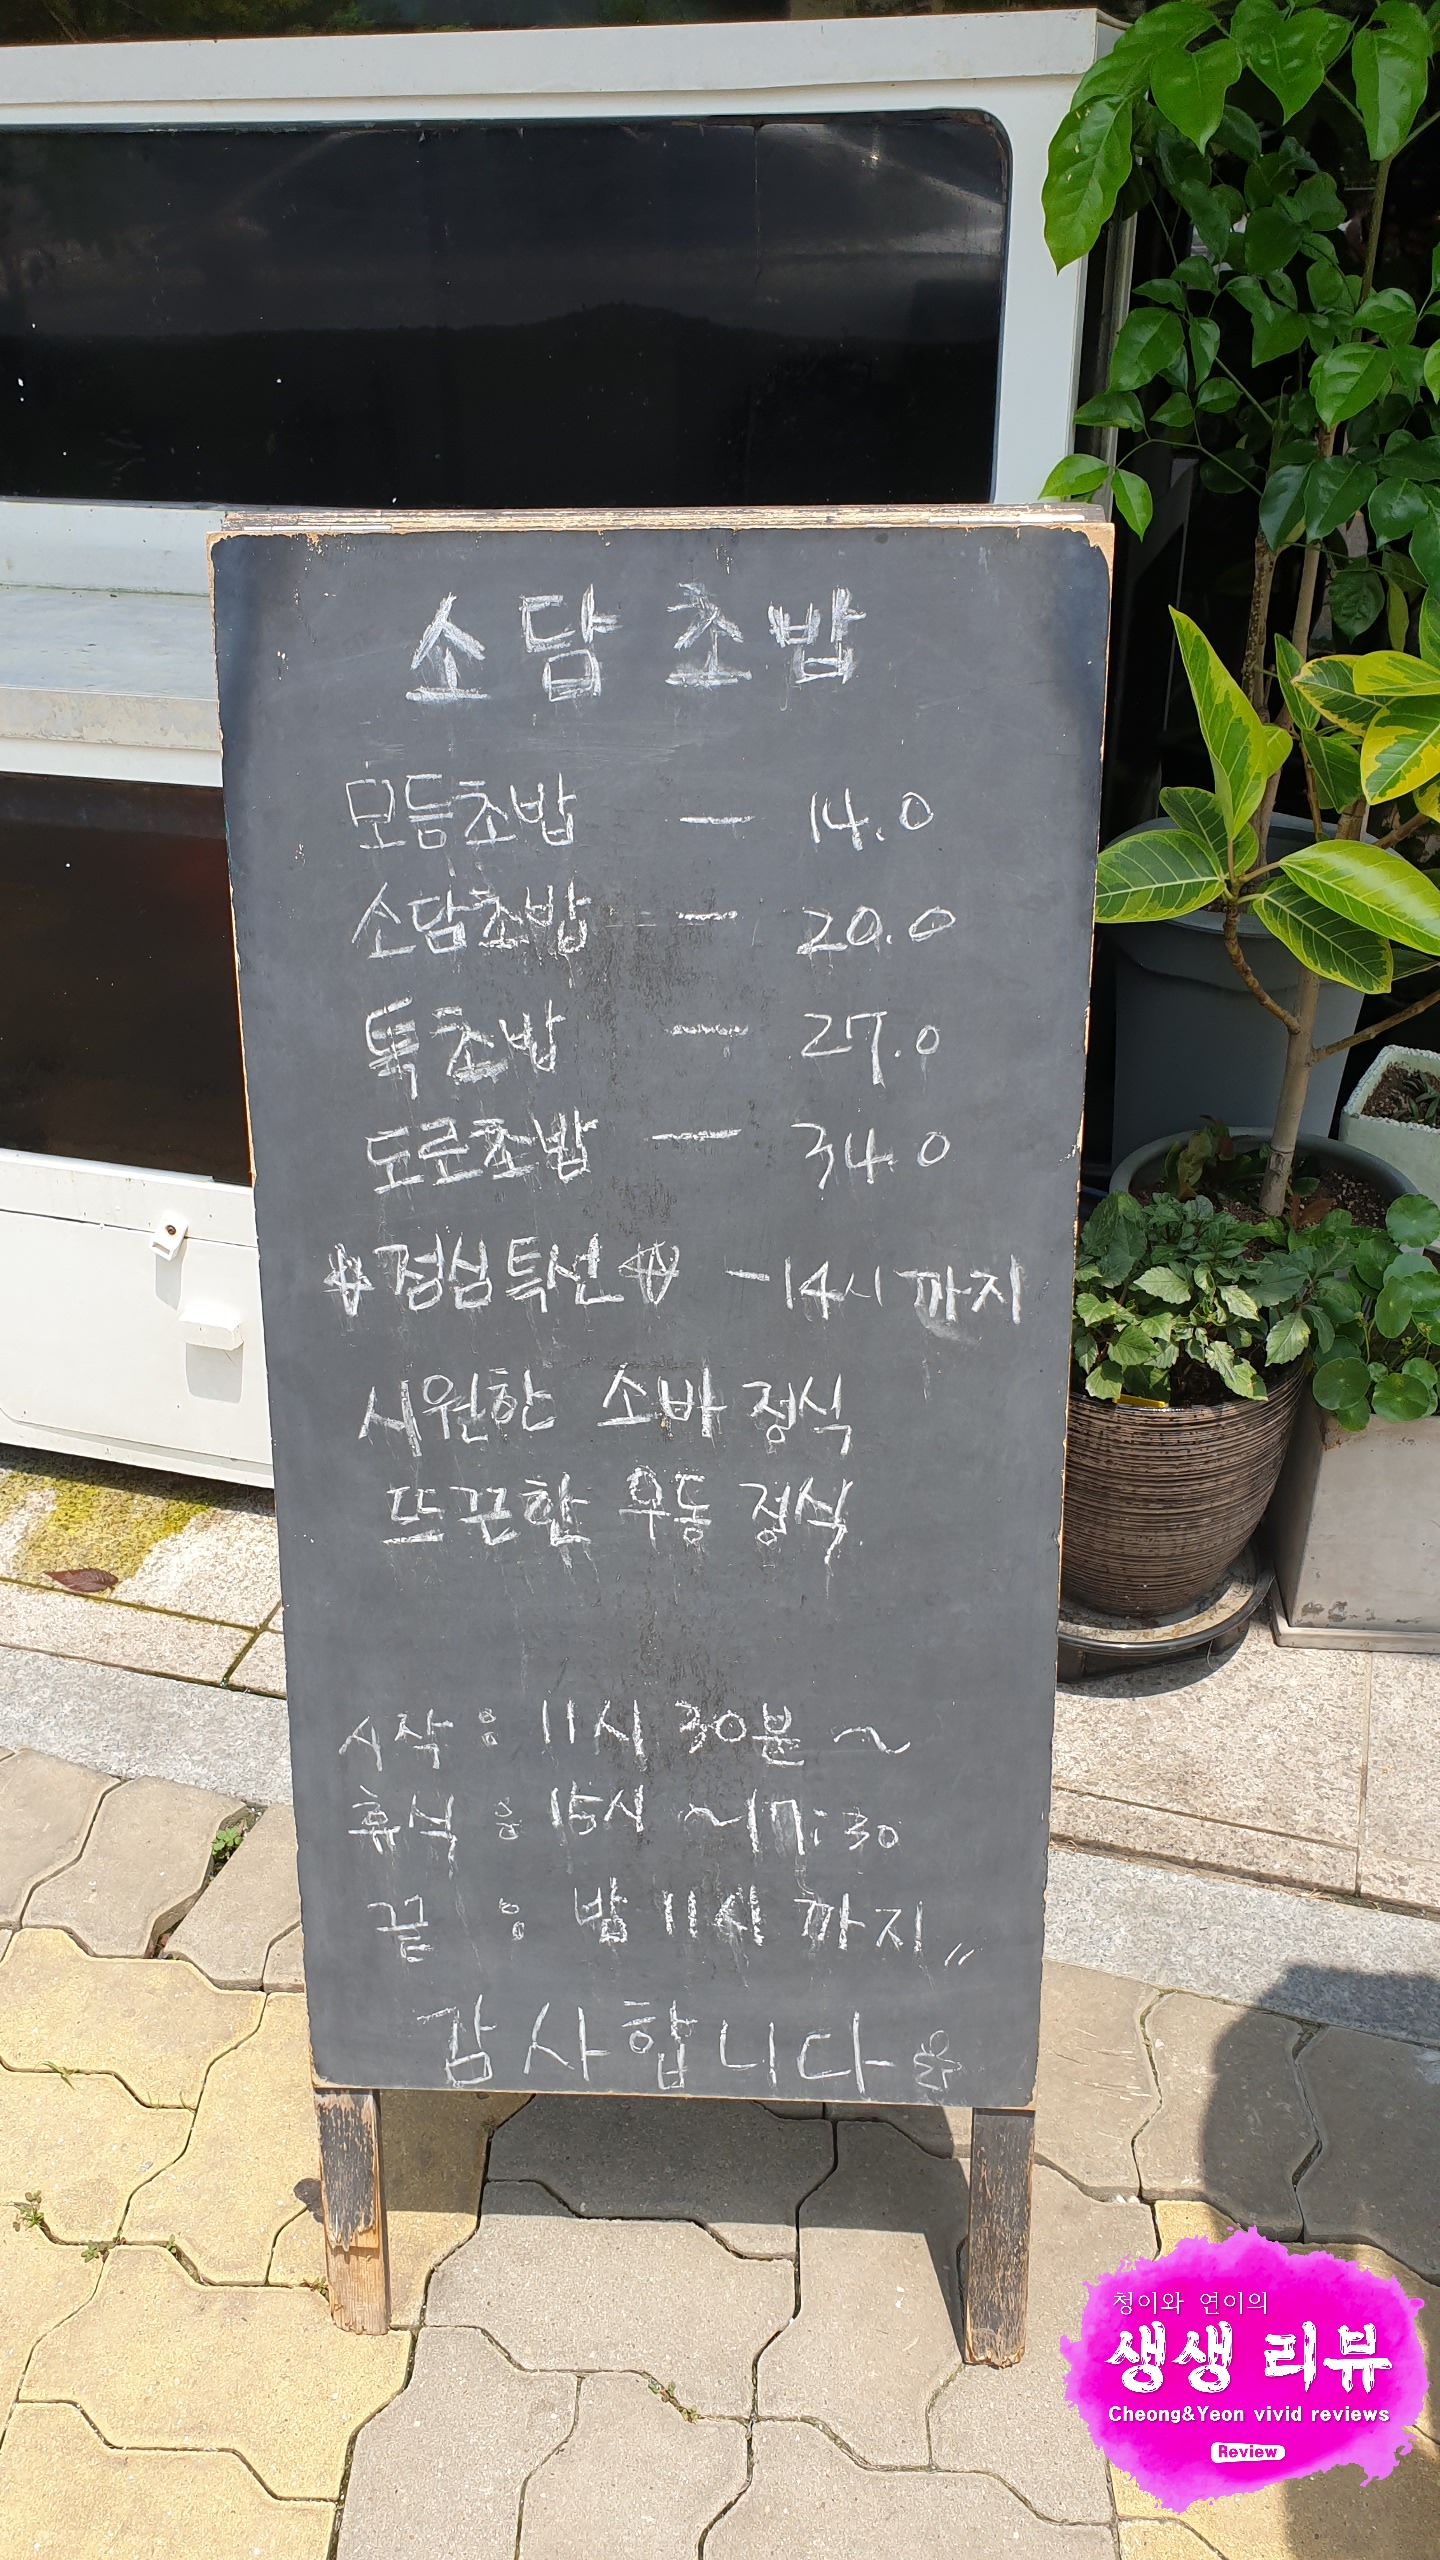 소담 초밥
모듬초밥 — 14.0
소담초밥 — 20.0
특초밥 — 27.0
도로초밥 — 34.0
점심특선 - 14시 까지
시원한 소바 정식
뜨끈한 우동 정식
시작 : 11시 30분 ~
휴식 : 15시 ~ 17:30
끝 : 밤 11시 까지〃
감사합니다
청이와 연이의
생생 리뷰
Cheong&Yeon vivid reviews
Review